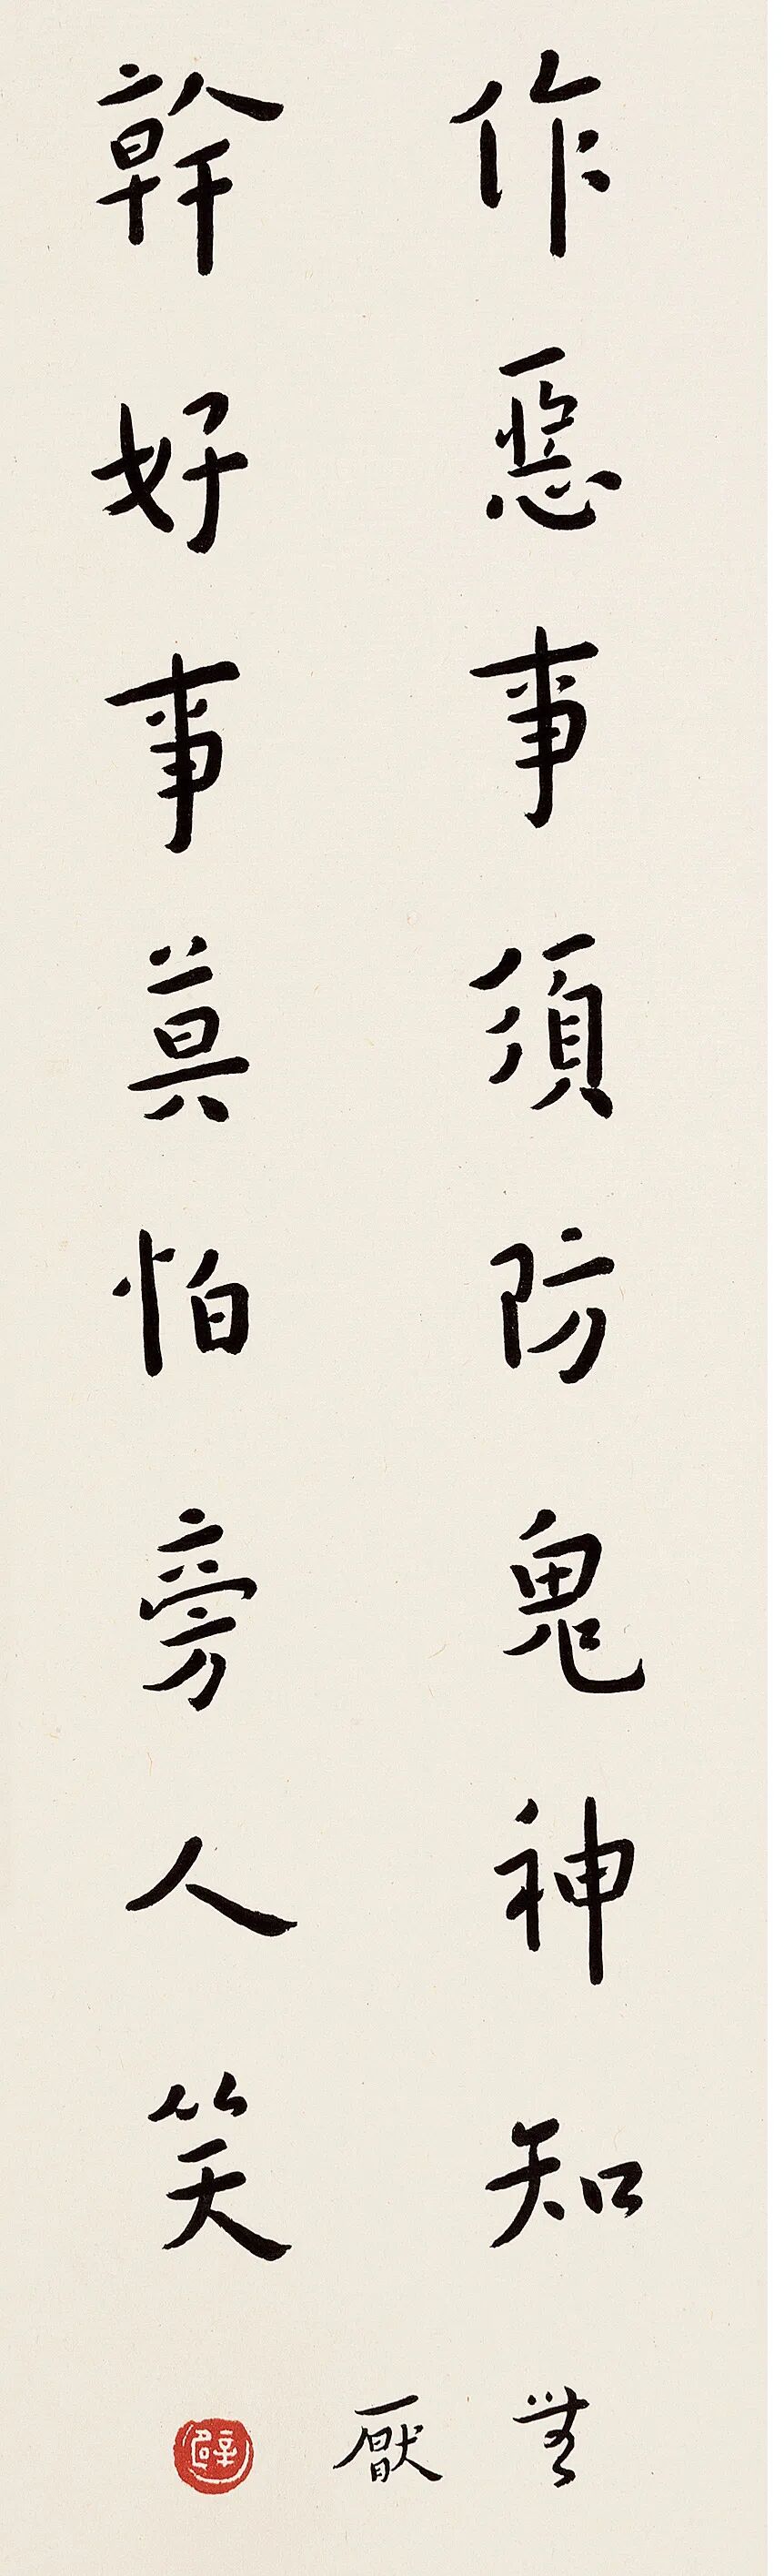 作惡事須防鬼神知
幹好事莫怕旁人笑
無厭